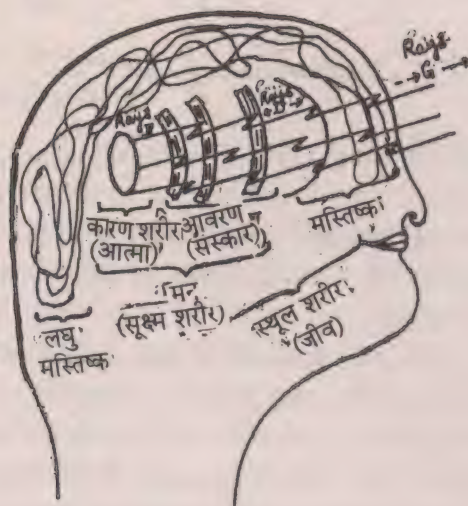 Rays
G
Rays
Rays
कारण शरीर
(आत्मा)
आवरण
(संस्कार)
मस्तिष्क
मन
(सूक्ष्म शरीर)
स्थूल शरीर
(जीव)
लघु
मस्तिष्क